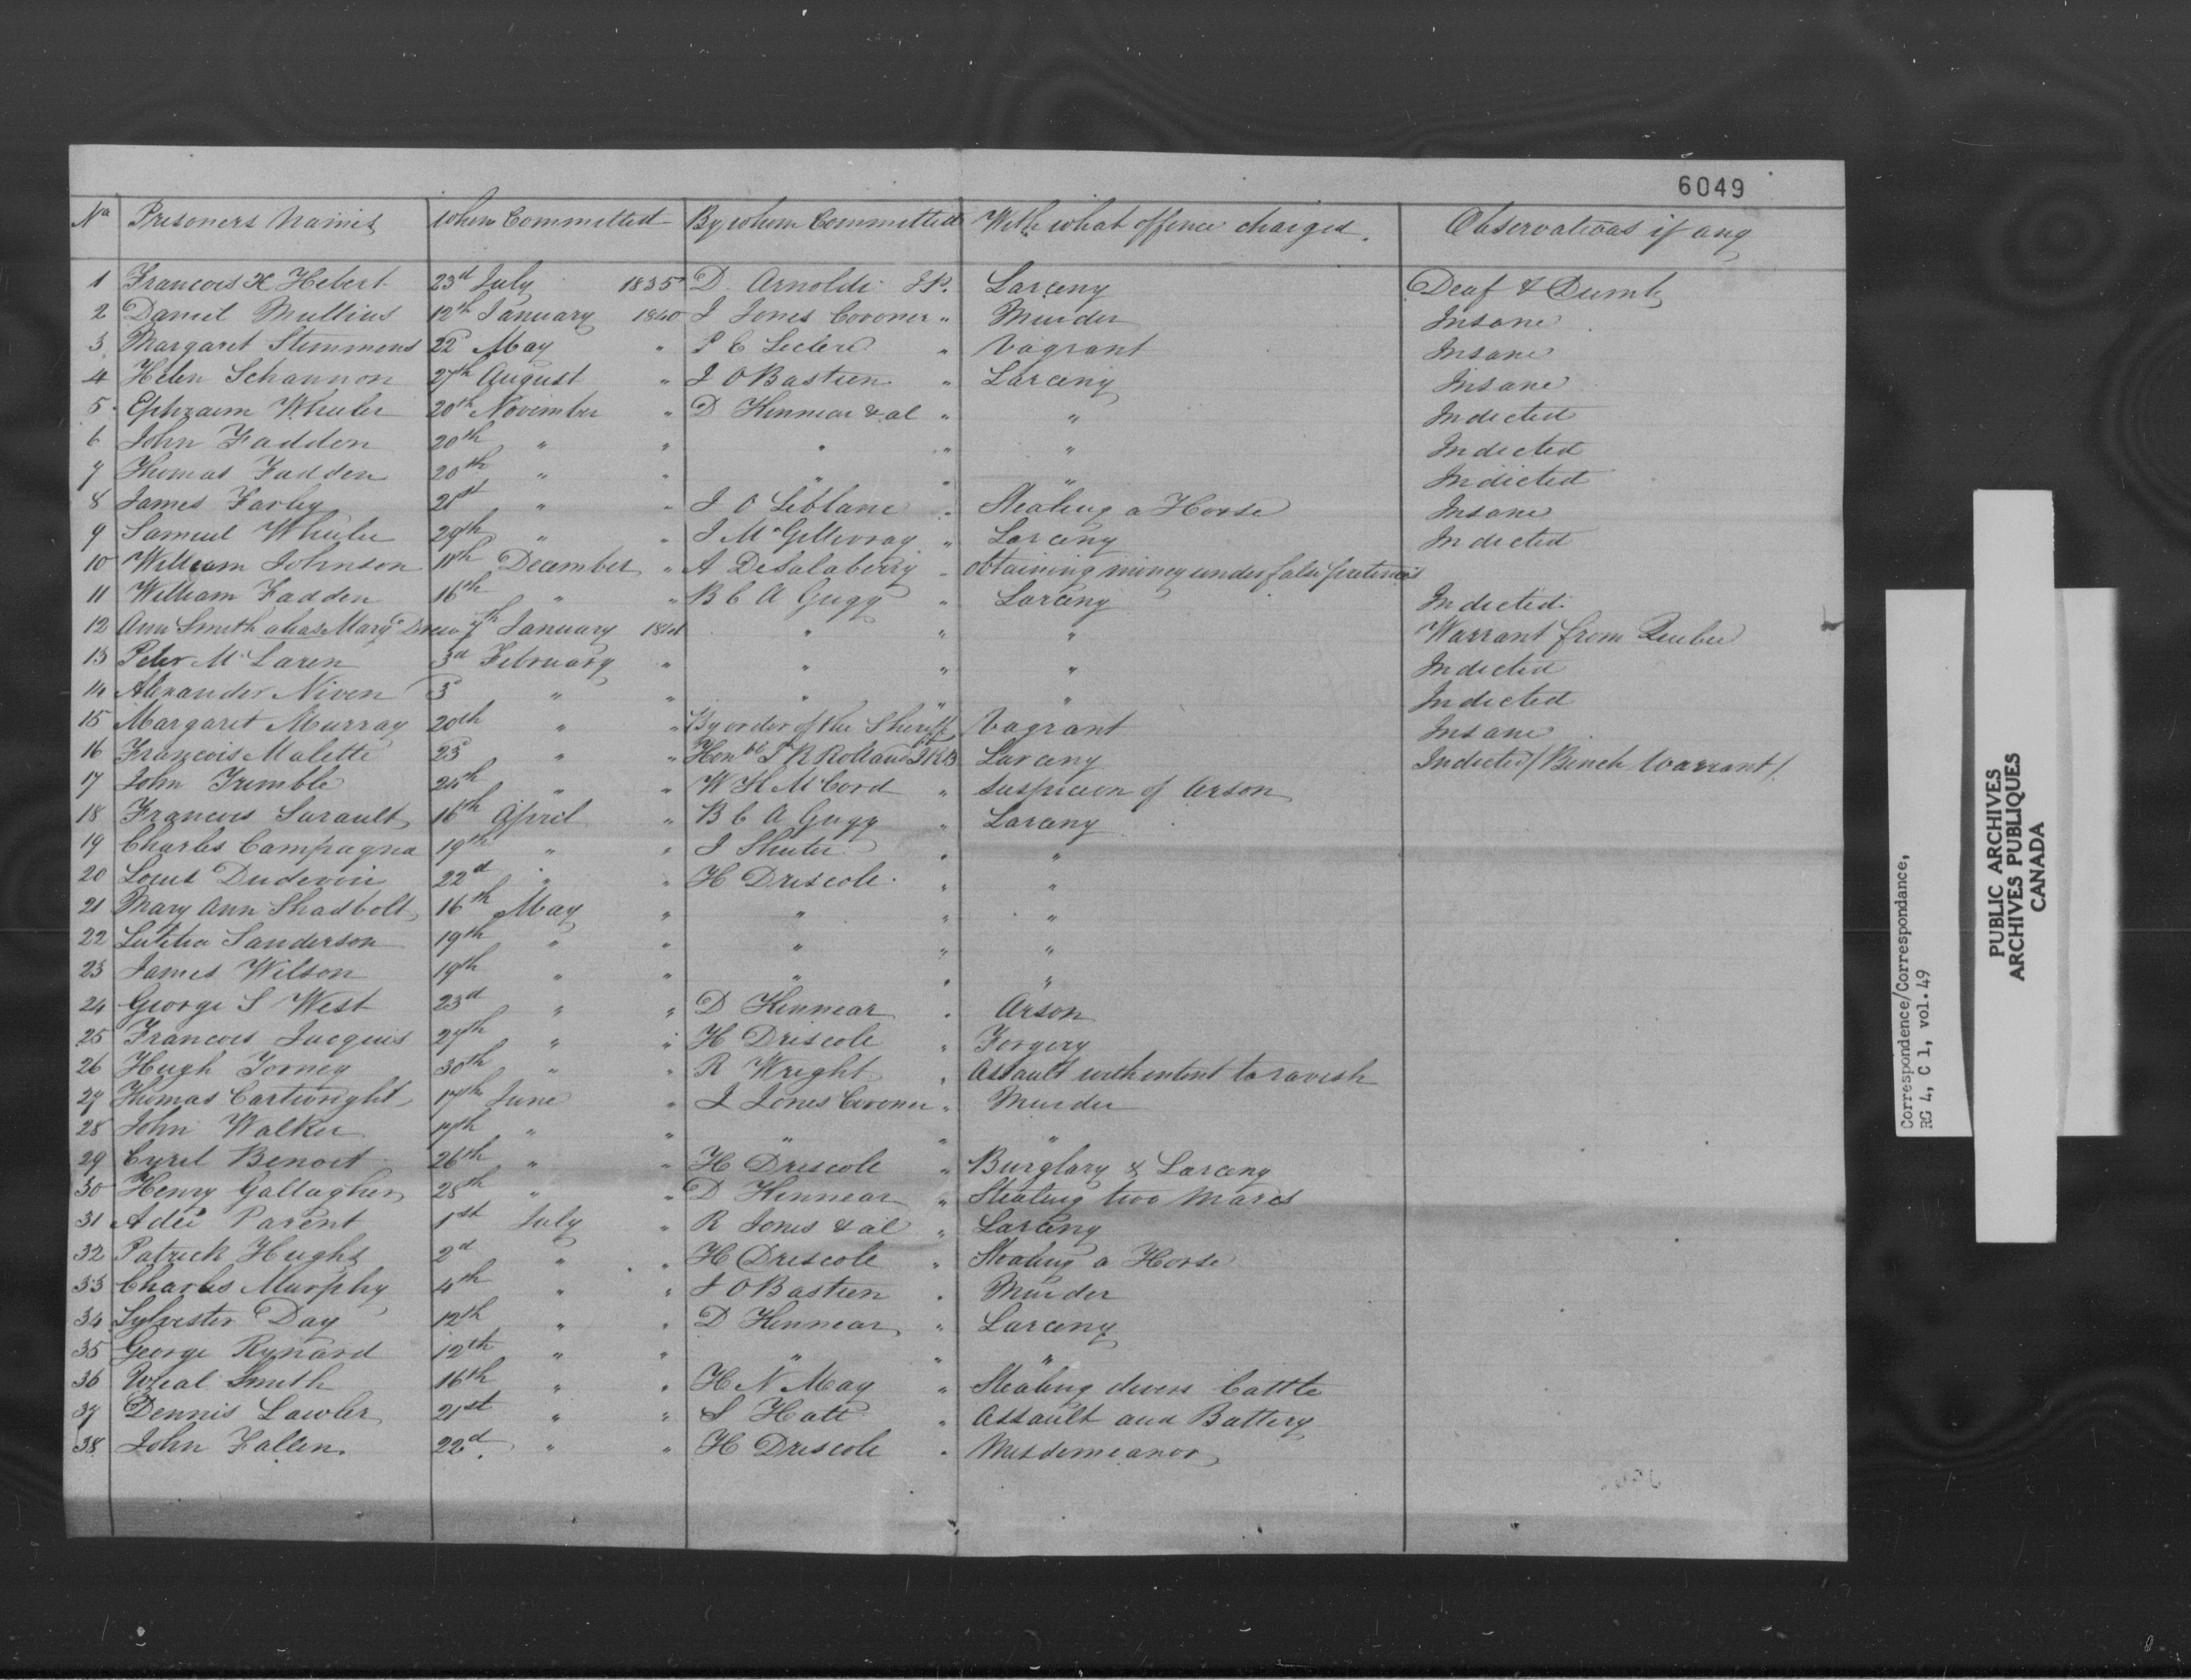 6049
No Prisoners Names When Committed By whom Committed With what offence charged. Observations if any
1 Francois X Hebert 23d July 1835 D. Arnoldi J.P. Larceny Deaf & Dumb
2 Daniel Mullins 12th January 1840 J Jones Coroner " Murder Insane
3 Margaret Stemmens 22d May " P E Leclere " Vagrant Insane
4 Helen Schannon 27th August " J O Bastien " Larceny Insane
5 Ephraim Wheeler 20th November " D Kinnear & al " " Indicted
6 John Fadden 20th " " " " " Indicted
7 Thomas Fadden 20th " " " " " Indicted
8 James Farley 21st " " J O Leblanc " Stealing a Horse Insane
9 Samuel Wheeler 29th " " J McGillivray " Larceny Indicted
10 William Johnson 11th December " A DeSalaberry " obtaining money under false pretences
11 William Fadden 16th " " B C A Gugy " Larceny Indicted
12 Ann Smith alias Margt Drew 7th January 1841 " " " Warrant from Quebec
13 Peter McLaren 3d February " " " " Indicted
14 Alexander Niven 3d " " " " " Indicted
15 Margaret Murray 20th " " By order of the Sheriff Vagrant Insane
16 François Malette 23d " " Honble J R Rolland JKB Larceny Indicted (Bench Warrant)
17 John Trimble 24th " " W K McCord " Suspicion of Arson
18 Francois Surault 16th April " B C A Gugy " Larceny
19 Charles Campagna 19th " " J Shuter " "
20 Louis Dudevin 22d " " H Driscole " "
21 Mary Ann Shadbolt 16th May " " " "
22 Letitia Sanderson 19th " " " " "
23 James Wilson 19th " " " " "
24 George S West 23d " " D Kinnear " Arson
25 Francois Jacques 27th " " H Driscole " Forgery
26 Hugh Torney 30th " " R Wright " Assault with intent to ravish
27 Thomas Cartwright 17th June " J Jones Coroner " Murder
28 John Walker 17th " " " " "
29 Cyril Benoit 26th " " H Driscole " Burglary & Larceny
30 Henry Gallagher 28th " " D Kinnear " Stealing two Mares
31 Adee Parent 1st July " R Jones & al " Larceny
32 Patrick Hughs 2d " " H Driscole " Stealing a Horse
33 Charles Murphy 4th " " J O Bastien " Murder
34 Sylvester Day 12th " " D Kinnear " Larceny
35 George Rynard 12th " " " " "
36 Wheal Smith 16th " " H N May " Stealing divers Cattle
37 Dennis Lawler 21st " " S Hatt " Assault and Battery
38 John Fallen 22d " " H Driscole " Misdemeanor
Correspondence/Correspondance,
RG 4, C 1, vol.49
PUBLIC ARCHIVES
ARCHIVES PUBLIQUES
CANADA